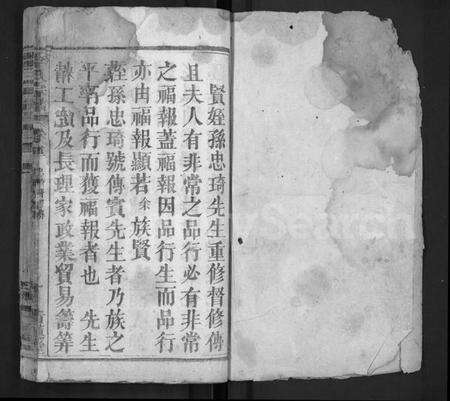 賢姪孫忠琦先生重修督修傳
且夫人有非常之品行必有非常
之福報蓋福報因品行生而品行
亦由福報顯若余族賢
姪孫忠琦號傳賓先生者乃族之
平品行而獲福報者也 先生
工及長理家政業貿易籌算